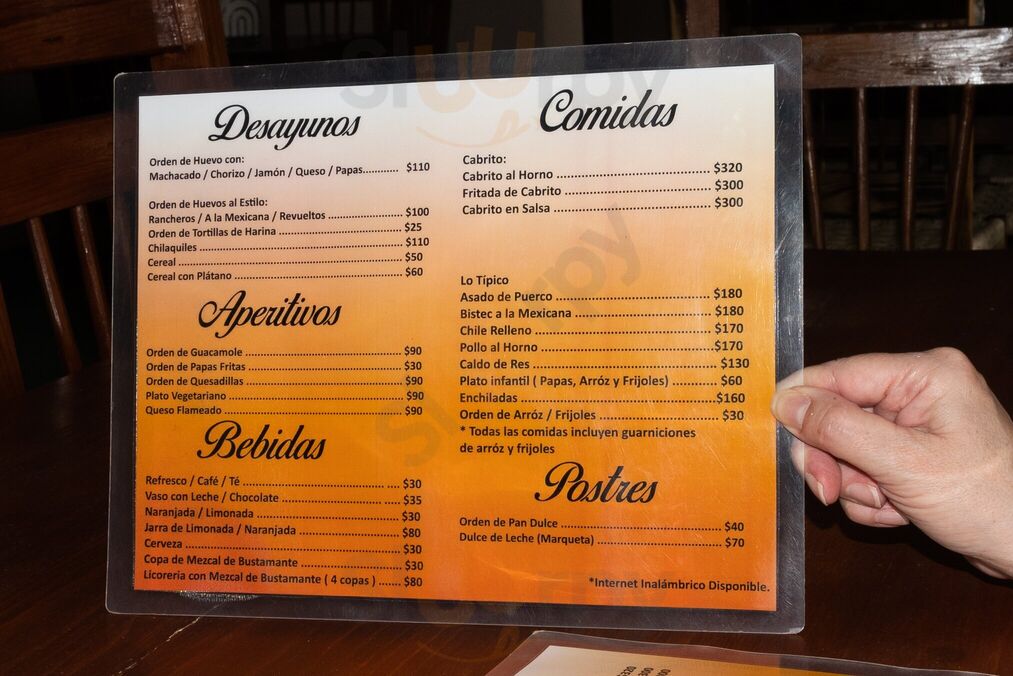 Desayunos
Orden de Huevo con:
Machacado / Chorizo / Jamón / Queso / Papas............ $110
Orden de Huevos al Estilo:
Rancheros / A la Mexicana / Revueltos ........................ $100
Orden de Tortillas de Harina ........................................ $25
Chilaquiles .................................................................. $110
Cereal ......................................................................... $50
Cereal con Plátano ...................................................... $60
Aperitivos
Orden de Guacamole .................................................. $90
Orden de Papas Fritas ................................................. $30
Orden de Quesadillas .................................................. $90
Plato Vegetariano ....................................................... $90
Queso Flameado ......................................................... $90
Bebidas
Refresco / Café / Té ..................................................... $30
Vaso con Leche / Chocolate ......................................... $35
Naranjada / Limonada ................................................. $30
Jarra de Limonada / Naranjada .................................... $80
Cerveza ....................................................................... $30
Copa de Mezcal de Bustamante ................................... $30
Licoreria con Mezcal de Bustamante ( 4 copas ) ....... $80
Comidas
Cabrito:
Cabrito al Horno .......................................... $320
Fritada de Cabrito ........................................ $300
Cabrito en Salsa ........................................... $300
Lo Típico
Asado de Puerco .......................................... $180
Bistec a la Mexicana ..................................... $180
Chile Relleno ............................................... $170
Pollo al Horno .............................................. $170
Caldo de Res ................................................ $130
Plato infantil ( Papas, Arróz y Frijoles) ............ $60
Enchiladas ....................................................$160
Orden de Arróz / Frijoles ............................... $30
* Todas las comidas incluyen guarniciones
de arróz y frijoles
Postres
Orden de Pan Dulce ........................................... $40
Dulce de Leche (Marqueta) ................................. $70
*Internet Inalámbrico Disponible.
Slurpy
Slurpy